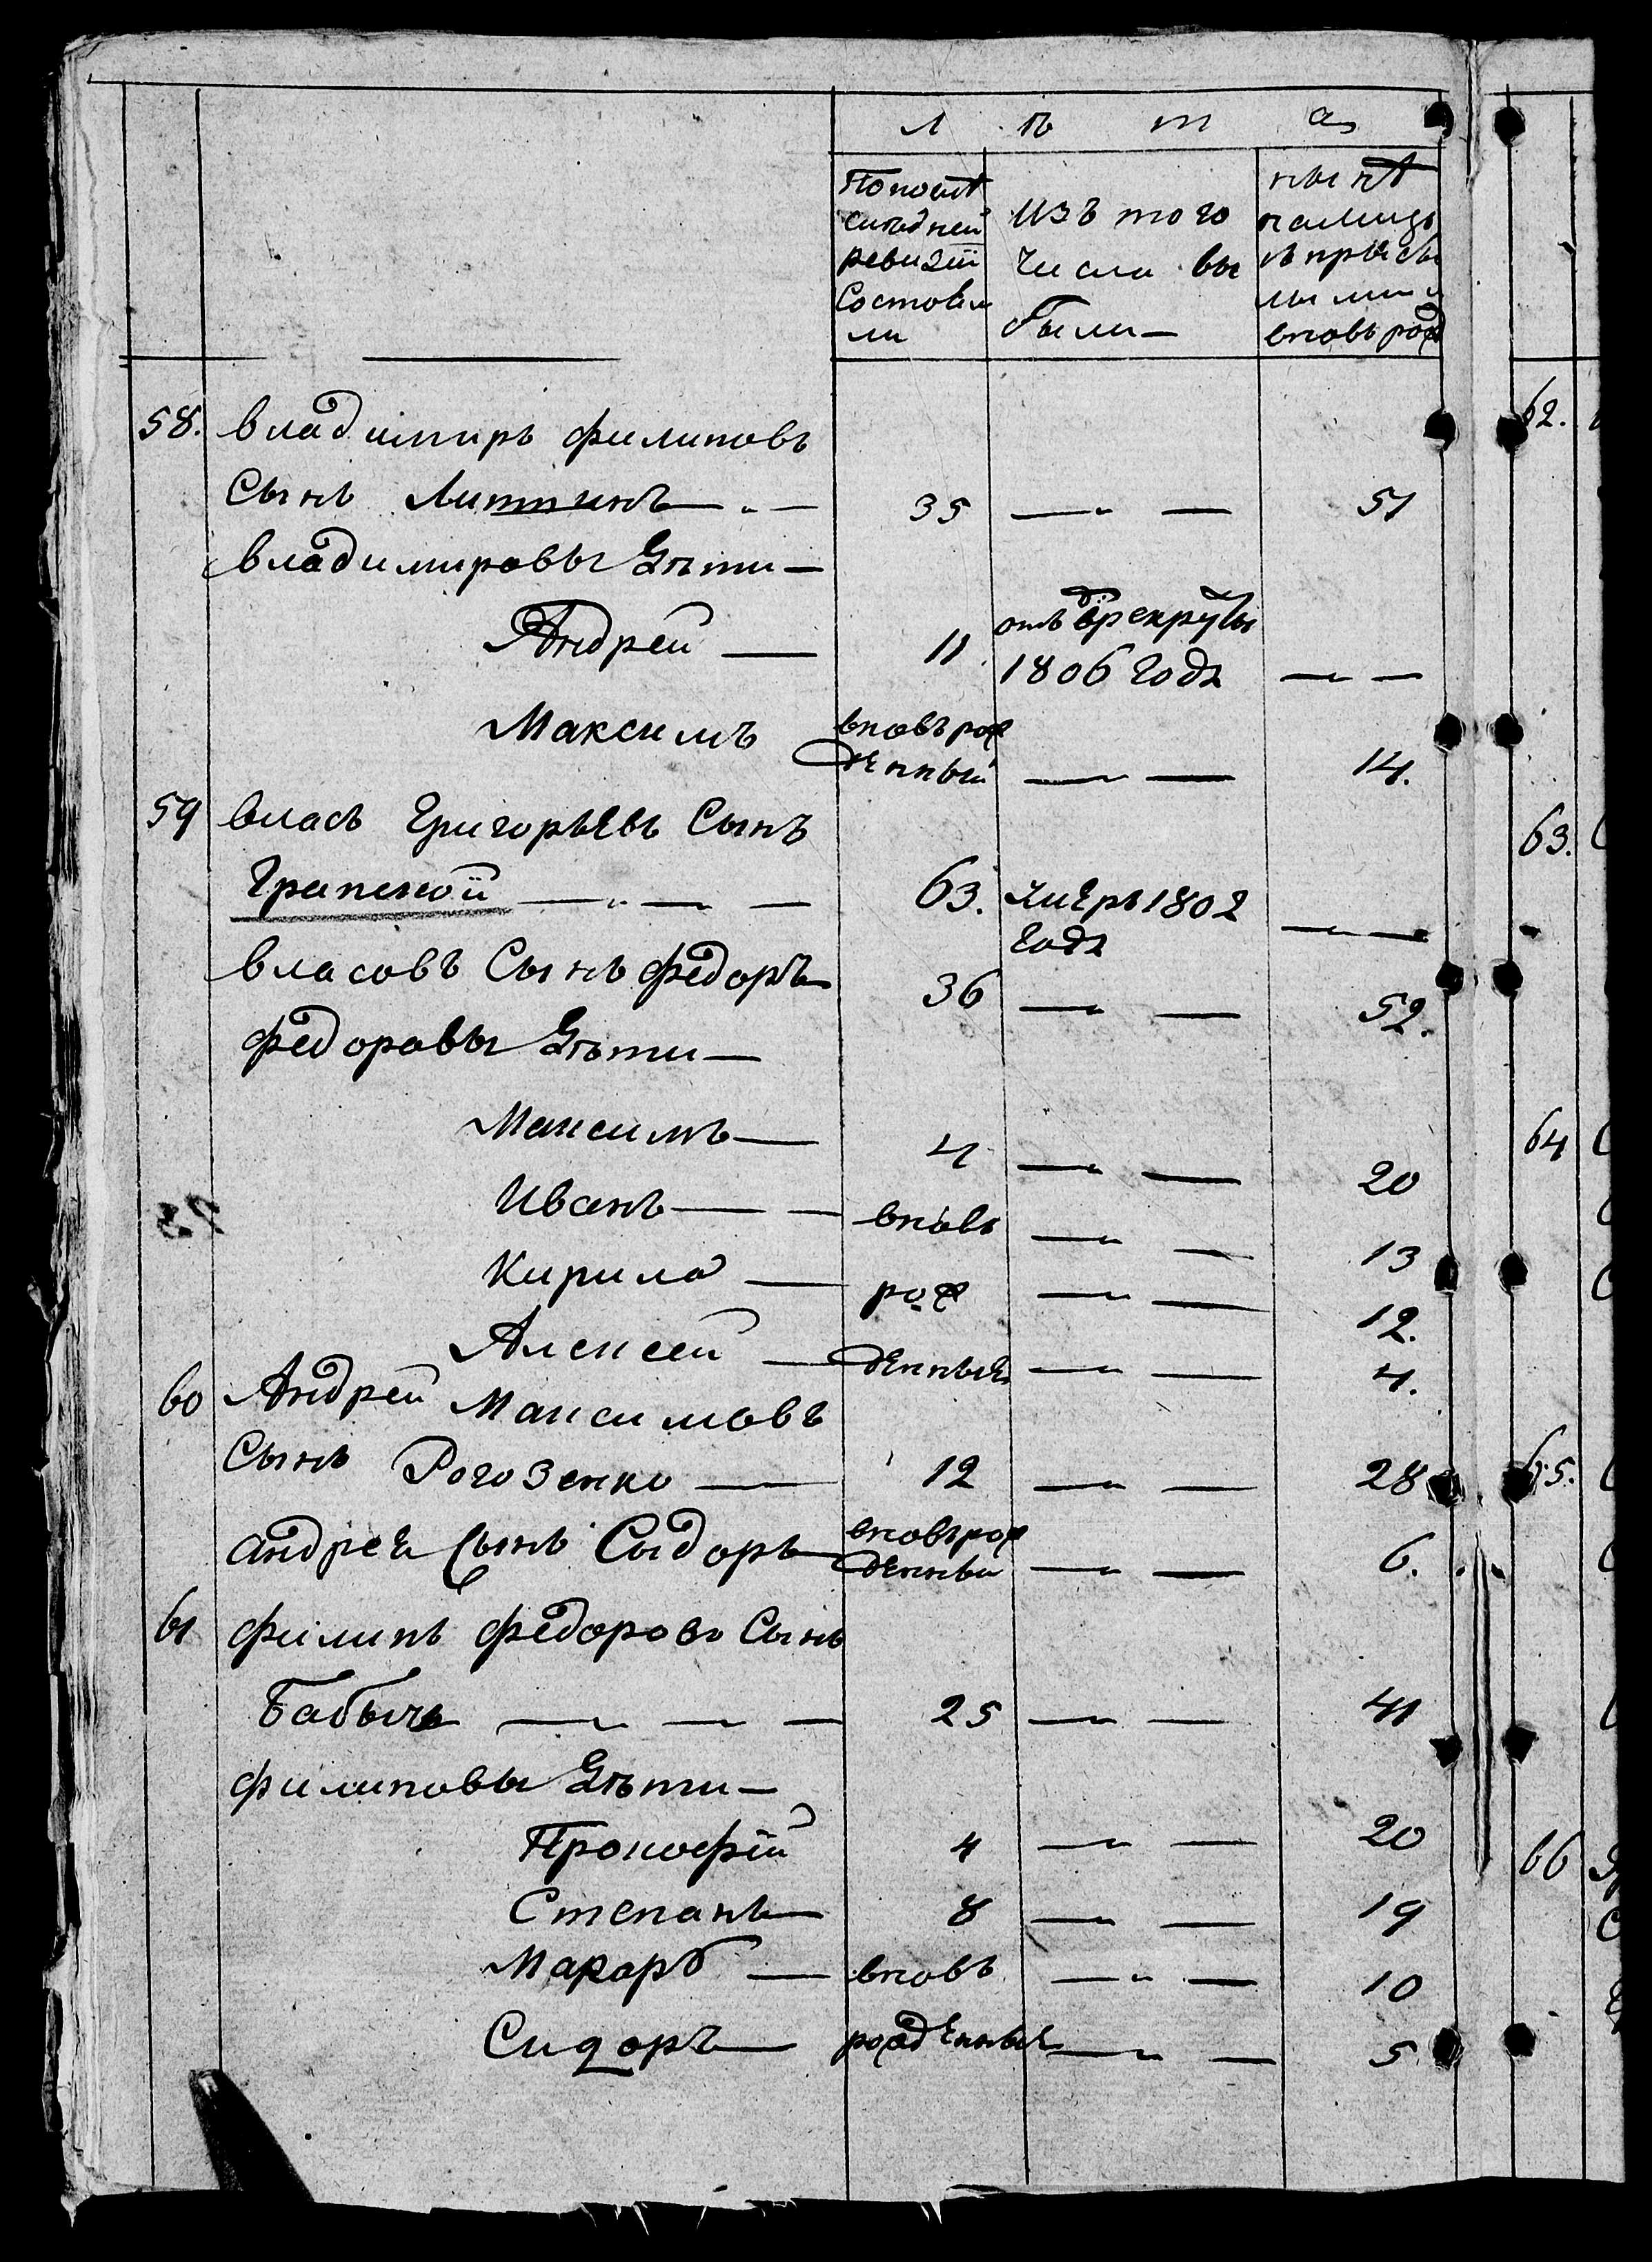 л ѣ т а
По послѣ
слѣдней
ревизіи
Состояли
ли
изъ того
числа вы
были —
нынѣ
налицо
съ прибы
лыми и
вновь рож
58. владимиръ филиповъ
Сынъ Литвинъ — 35 — 51
владимировы дѣти —
Андрей — 11 отъ въ рекруты
1806 года —
Максимъ вновь рож
денный — 14.
59 власъ Григорьевъ Сынъ
Грапской — 63. умеръ 1802
года —
власовъ Сынъ федоръ 36 — 52.
федоровы дѣти —
Максимъ — 4 — 20
Иванъ — вновь — 13
Кирило — рож — 12.
Алексей — денные — 4.
60 Андрей Максимовъ
Сынъ Рогозенко — 12 — 28
андрея Сынъ Сыдоръ вновь рож
денный — 6.
61 филипъ федоровъ Сынъ
Бабычь — 25 — 41
филиповы дѣти —
Прокофій 4 — 20
Степанъ — 8 — 19
Макаръ — вновь — 10
Сидоръ — рожденные — 5
62.
63.
64
65.
66